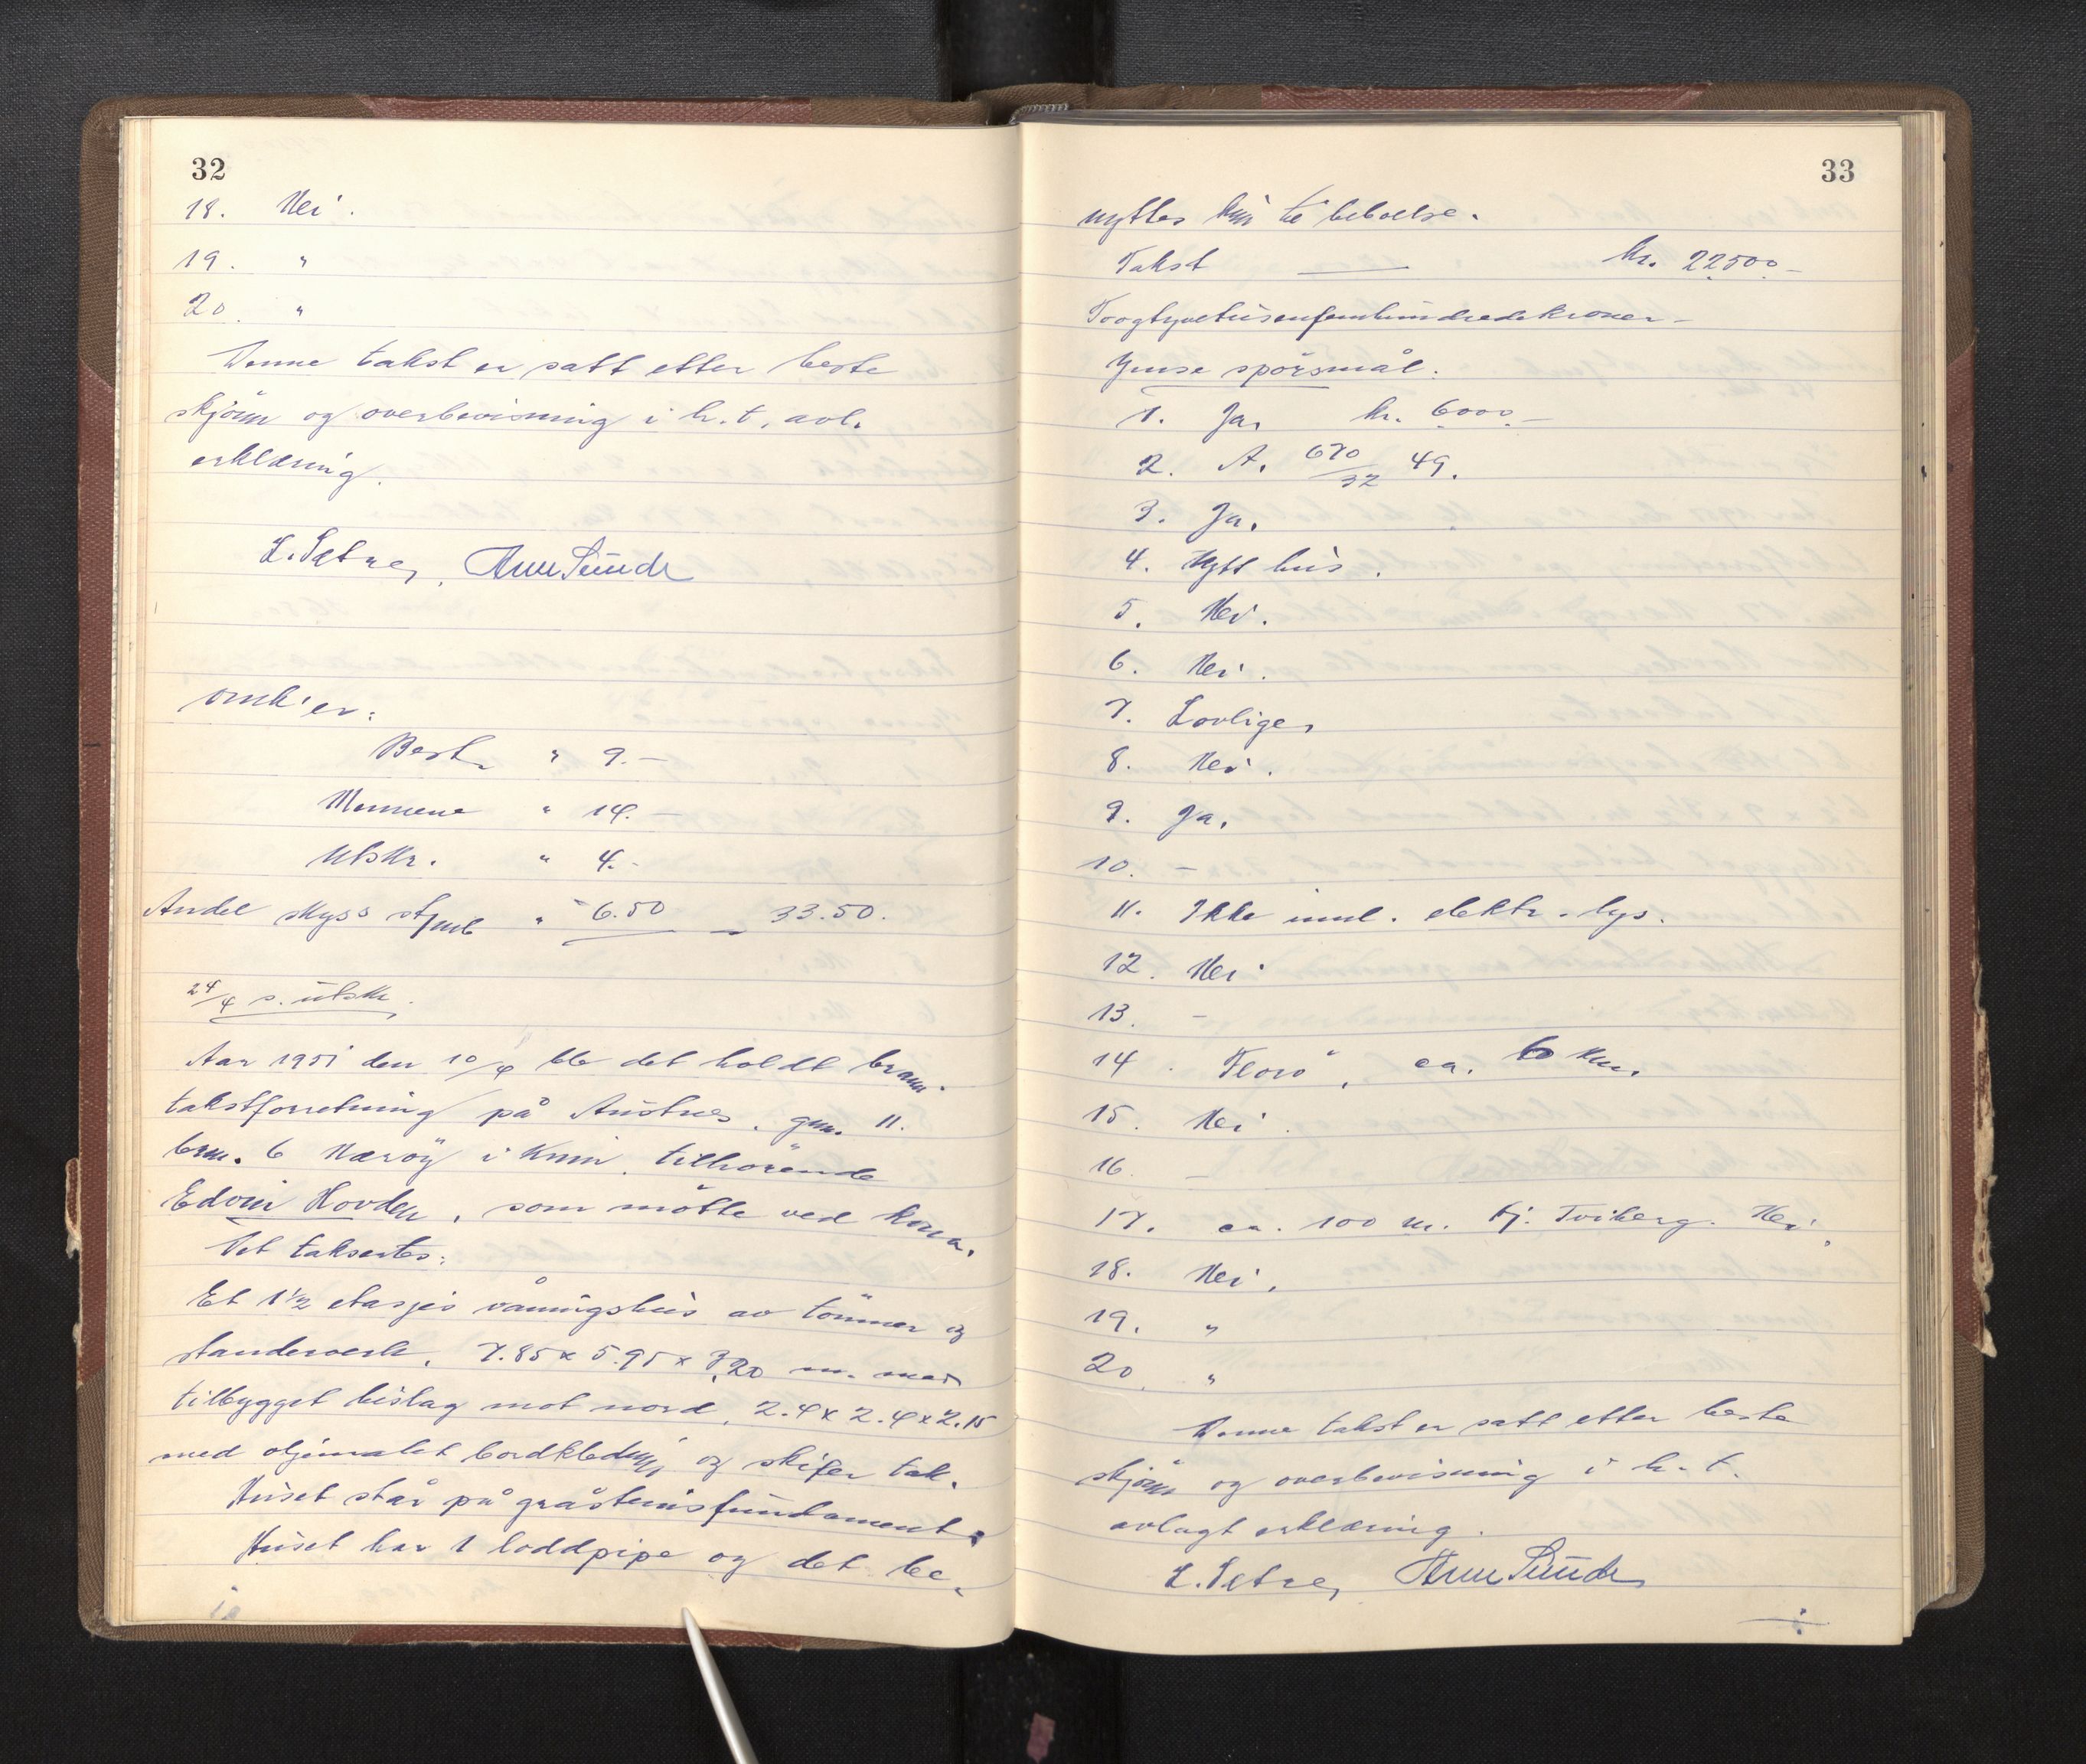 32
18. Nei.
19. "
20. "
Denne takst er satt etter beste
skjönn og overbevisning i h.t. avl.
erklæring.
L. Sætre, Arne Sunde
omk'er:
Best. " 9.—
Mennene " 14.—
Utskr. " 4.-
Andel skyss " 6.50 — 33.50.
24/4 s. utskr.
Aar 1951 den 10/4 ble det holdt brann-
takstforretning på Austnes, gnr. 11.
brnr. 6 Næröy i Kinn, tilhörende
Edvin Hovden, som mötte ved kona.
Det taksertes:
Et 1 1/2 etasjes våningshus av tömmer og
standerverk, 7.85 x 5.95 x 3,20 m. med
tilbygget bislag mot nord, 2.4 x 2.4 x 2.15
med oljemalet bordkledning og skifer tak.
Huset står på gråsteinsfundament.
Huset har 1 loddpipe og det be-
33
nyttes kun til beboelse.
Takst — kr. 22500—
Toogtyvetusenfemhundredekroner—
Jmse spörsmål:
1. Ja, kr. 6000.—
2. A. 670/32 49.
3. Ja.
4. Nytt hus.
5. Nei.
6. Nei.
7. Lovlige,
8. Nei.
9. Ja.
10. —
11. Ikke innl. elektr. lys.
12. Nei.
13. —
14. Florö, ca. km.
15. Nei.
16. —
17. ca. 100 m. tj. Tviberg. Nei.
18. Nei.
19. "
20. "
Denne takst er satt etter beste
skjönn og overbevisning i h.t.
avlagt erklæring.
L. Sætre, Arne Sunde